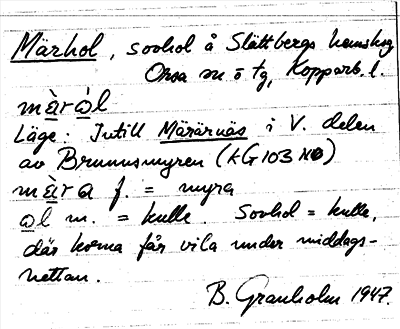 Märhol, sovhol å Slättbergs hemskog
Orsa sn ö tg, Kopparb. l.
mὰrὼl
Läge: Intill Märärnäs i V. delen
av Brunnsmyren (KG103 NO)
mὰrα f. = myra
ωl m. = kulle. Sovhol = kulle,
där korna får vila under middags-
hettan.
B. Granholm 1947.